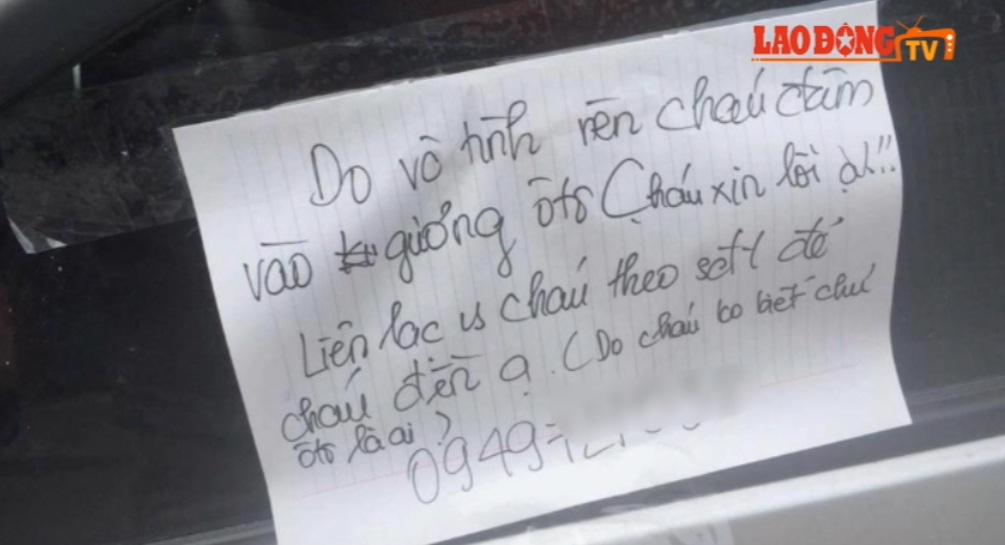 LAO ĐỘNG TV
Do vô tình nên cháu đâm
vào gương ôtô Cháu xin lỗi ạ!!..
Liên lạc vs cháu theo sđt để
cháu đền ạ. (Do cháu ko biết chủ
ôtô là ai?
0949